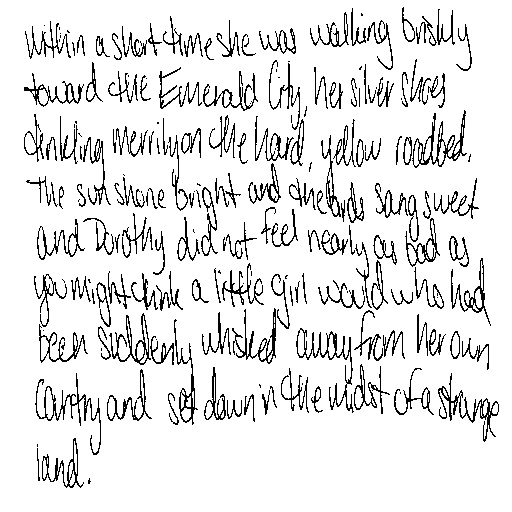 within a short time she was walking briskly
toward the Emerald City, her silver shoes
tinkling merrily on the hard, yellow roadbed.
The sun shone bright and the birds sang sweet
and Dorothy did not feel nearly as bad as
you might think a little girl would who had
been suddenly whisked away from her own
country and set down in the midst of a strange
land.